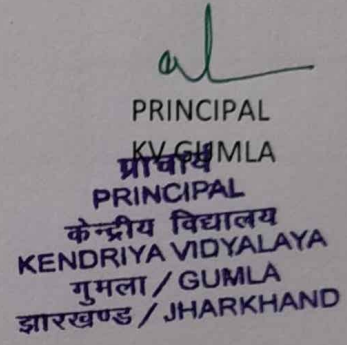 PRINCIPAL
KV GUMLA
प्राचार्य
PRINCIPAL
केन्द्रीय विद्यालय
KENDRIYA VIDYALAYA
गुमला / GUMLA
झारखण्ड / JHARKHAND